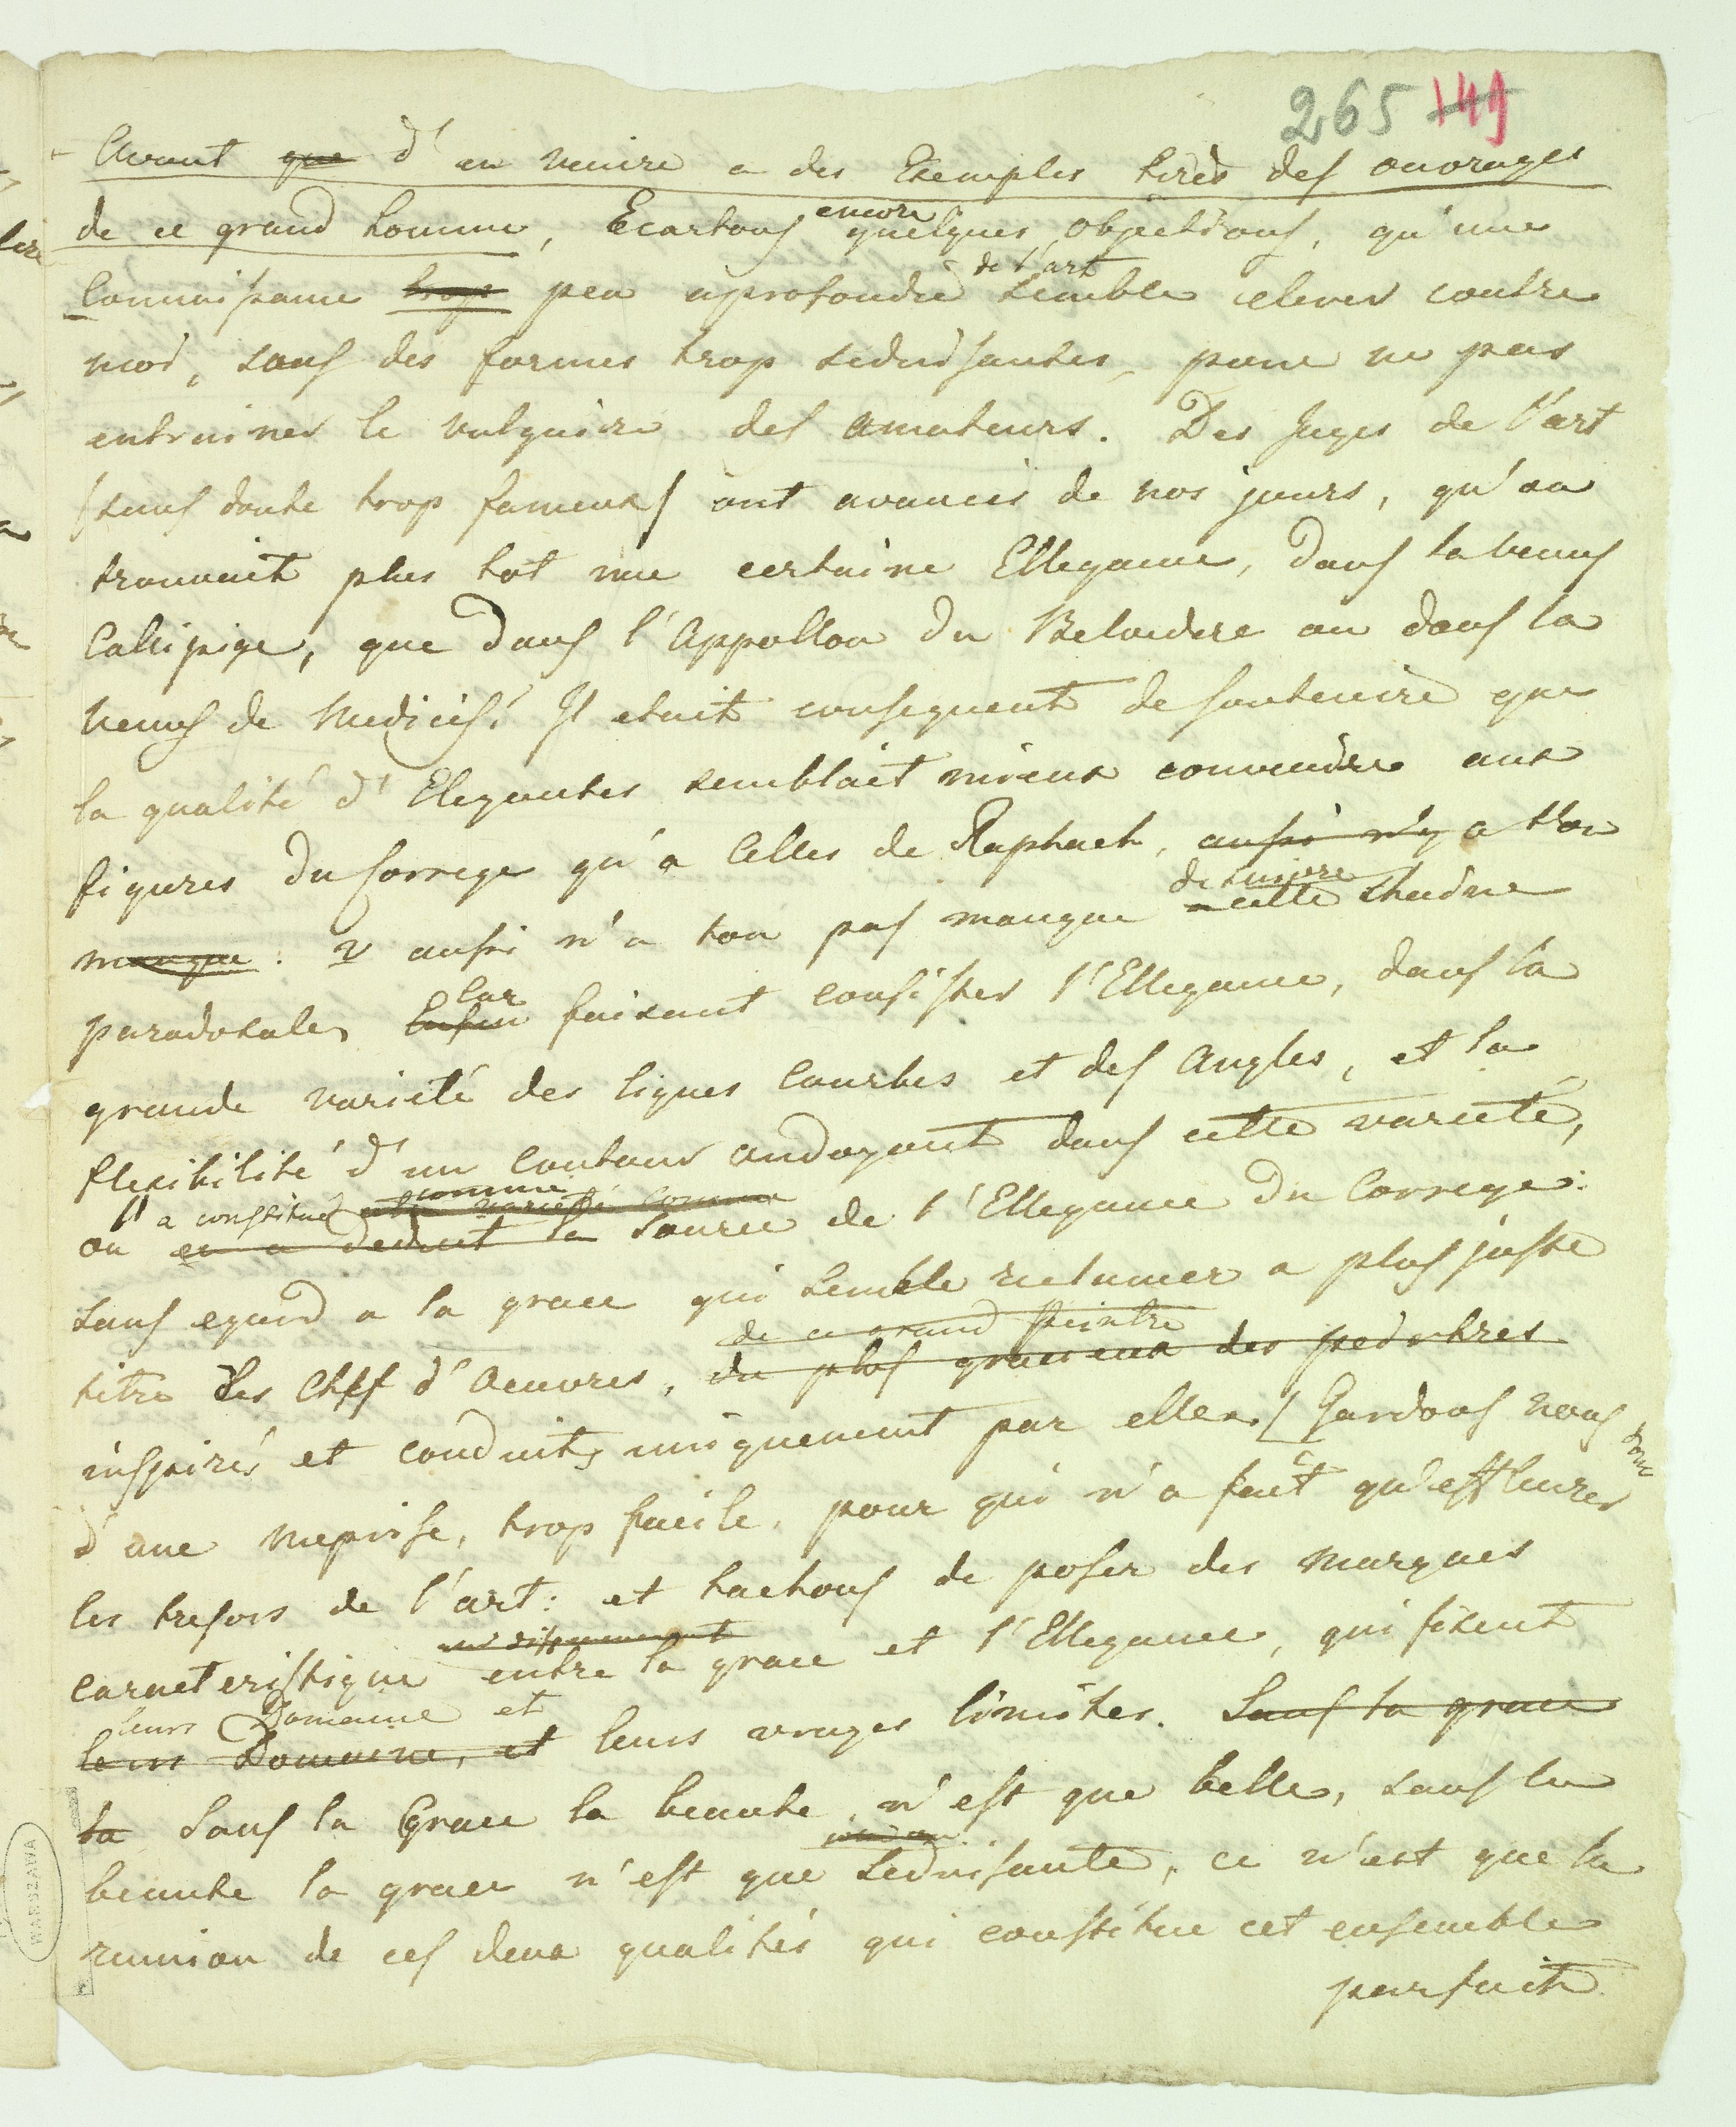 265 149
Avant que d'en venire a des Exemples tirés des ouvrages
de ce grand homme, Ecartons encore quelques objections, qu'une
Connoissance trop peu aprofondie de l'art semble elever contre
moi, sous des formes trop seduisantes, pour ne pas
entrainer le vulgaire des amateurs. Des Juges de l'art
(sans doute trop fameux) ont avancés de nos jours, qu'on
trouvait plus tot une certaine Ellegance, dans la Venus
Callipige, que dans l'Appollon du Belvedere ou dans la
Venus de Medicis: Il etait consequent de soutenire que
la qualité d'Elegantes semblait mieux convenire aux
figures du Correge qu'a Celles de Raphael, aussi n'y a t'on
manque : v aussi n'a ton pas manque de suivre a cette chaine
paradoxale, Car Enfin faisant consister l'Ellegance, dans la
grande varieté des lignes Courbes et des Angles, et la
flexibilité d'un Contour ondoyant dans cette varieté,
l'a constitué comme cette varieté comme
on en a deduit la Source de l'Ellegance du Correge:
sans egard a la grace qui semble reclamer a plus juste
de ce grand Peintre
titre les Cheff d'Oeuvres, du plus gracieux des peintres
inspirés et conduits uniquement par elle. / Gardons nous donc
d'une meprise, trop facile, pour qui n'a fait qu'effleurer
les tresors de l'art: et tachons de poser des marques
caracteristique entre la grace et l'Ellegance, qui fixent
leurs Domaine et
leurs Domaine, et leurs vrayes limites. Sans la grace
la Sans la Grace la beauté n'est que belle, sans la
beaute la grace n'est que seduisante, ce n'est que la
reunion de ces deux qualités qui constitue cet ensemble
parfait
WARSZAWA